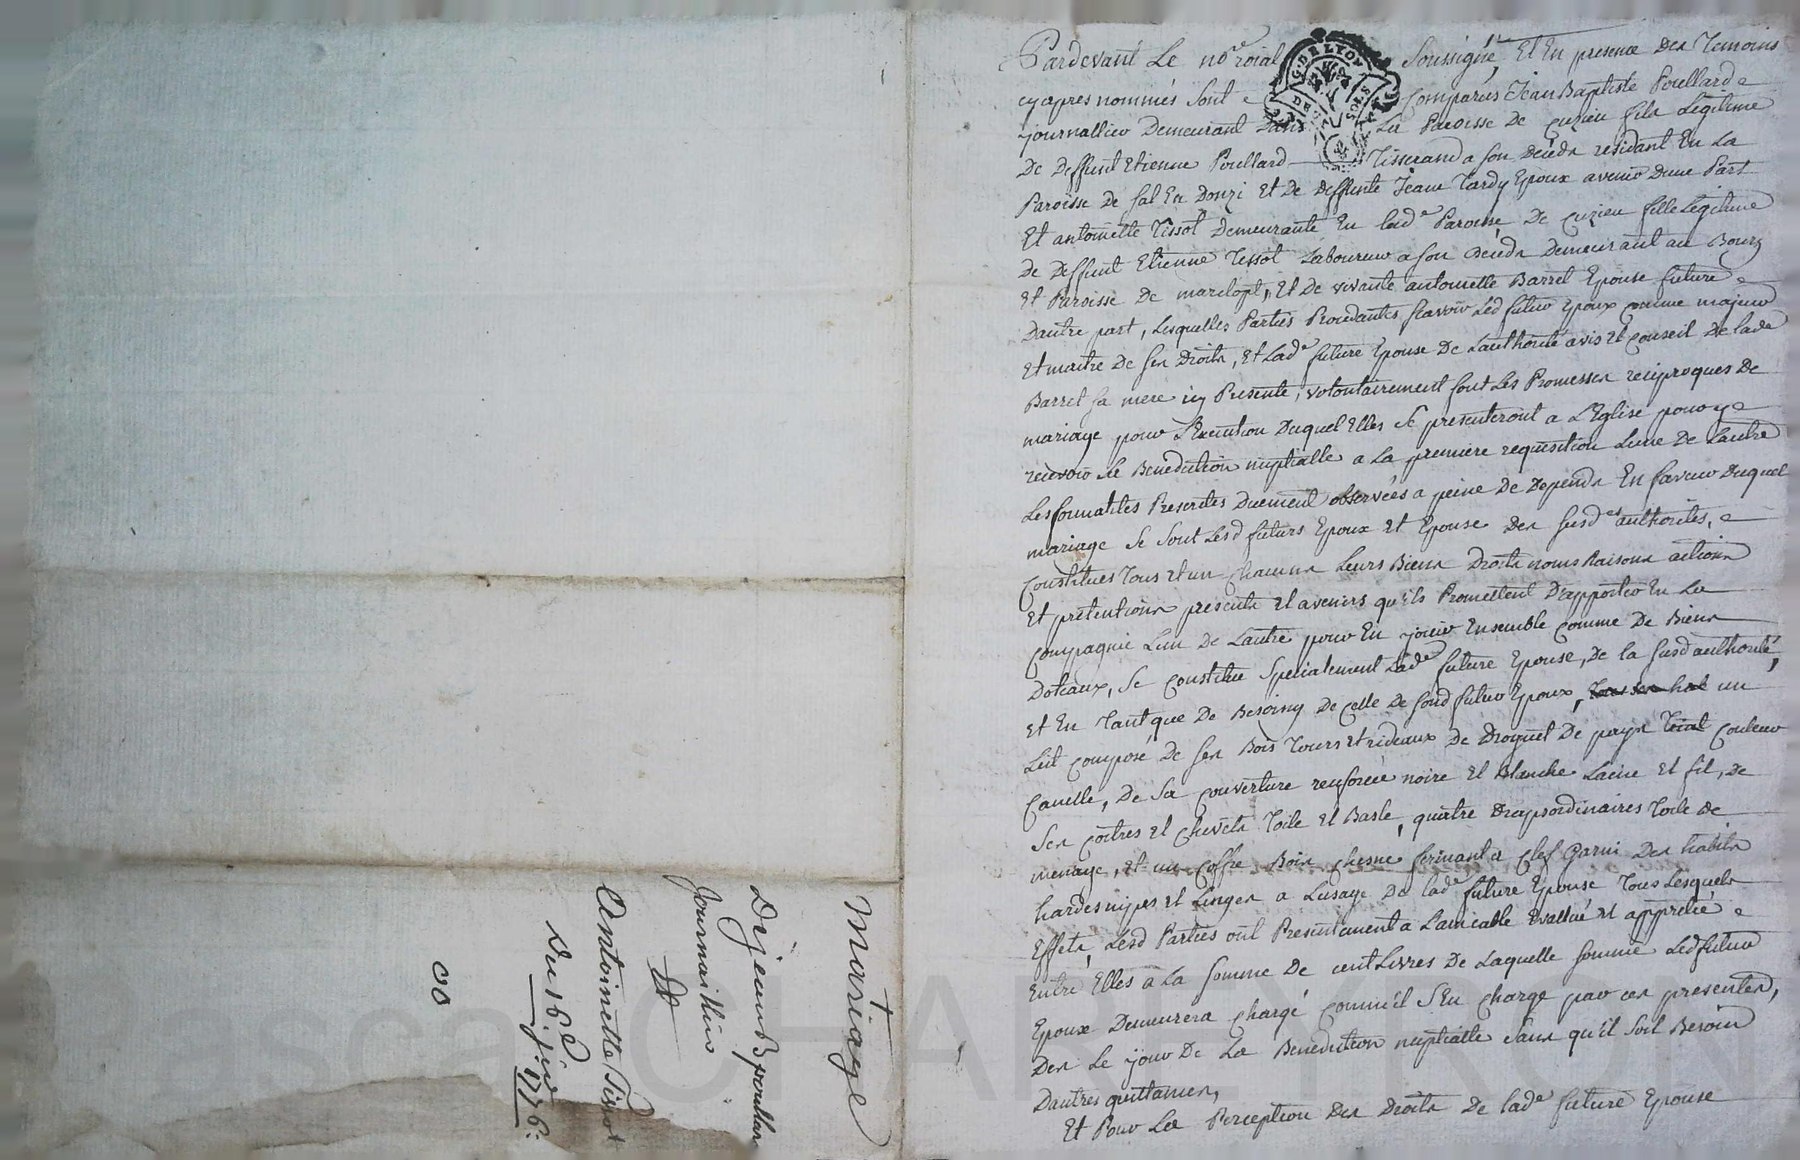 Mariage
De jean B poullar
Journaillier
&
Antoinette Tissot
Du 16e jer
1776:
Pardevant Le nore roial Soussigné, Et En presence Des Temoins
cyapres nommés sont Comparus Jean Baptiste Poullard
journallier Demeurant Dans La Paroisse De Cuzieu fils Légitime
De Deffunt Etienne Poullard Tisserand a son Décéds residant En La
Paroisse De sal En Donzi Et De Deffunte Jeane Tardy Epoux avenir Dune Part
Et antoinette Tissot Demeurante En lade Paroisse De Cuzieu fille Légitime
De Deffunt Etienne Tissot Laboureur a son Décéds Demeurant au Bourg
Et Paroisse De marclopt, Et De vivante antoinette Barret Epouse future
Dautre part, Lesquelles Parties Procedantes scavoir Léd futur Epoux comme majeur
Et maitre De ses Droits, Et Lade future Epouse De Lauthorité avis Et Conseil De lade
Barret sa mere icy Presente, volontairement font Les Promesses reciproques De
mariage pour L'Execution Duquel Elles se presenteront a L'Eglise pour y
recevoir La Benediction nuptialle a La premiere requisition Lune De Lautre
Les formalités Prescrites Duement observées a peine De Depends En faveur Duquel
mariage se sont Lesd futurs Epoux Et Epouse Des susdes authorités,
Constitues Tous Et un Chacuns Leurs Biens Droits noms Raisons actions
Et pretentions presents Et avenirs qu'ils Promettent D'apporter En La
Compagnie Lun De Lautre pour En jouir Ensemble Comme De Biens
Dotaux, Se Constitue Specialement Lade future Epouse, De la susd authorité,
Et En Tant que De Besoing De Celle De sond futur Epoux, un
Lit composé De ses Bois Tours Et rideaux De Droguet De pays Couleur
Canelle, De sa Couverture renforcée noire Et Blanche Laine Et fil, De
Ses Coitres Et Chevets Toile Et Basle, quatre Draps ordinaires Toile De
menage, Et un Coffre Bois Chesne fermant a Clef Garni Des habits
hardes nipes Et Linges a Lusage De lade future Epouse Tous Lesquels
Effets, Lesd Parties ont Presentement a L'amicable Evallué Et apprétié
Entre Elles a La somme De cent Livres De Laquelle somme Led futur
Epoux Demeurera chargé Comme il S'En charge par ces presentes,
Des Le jour De La Benediction nuptialle Sans qu'il soit Besoin
Dautres quittances,
Et Pour La Perception Des Droits De lade future Epouse